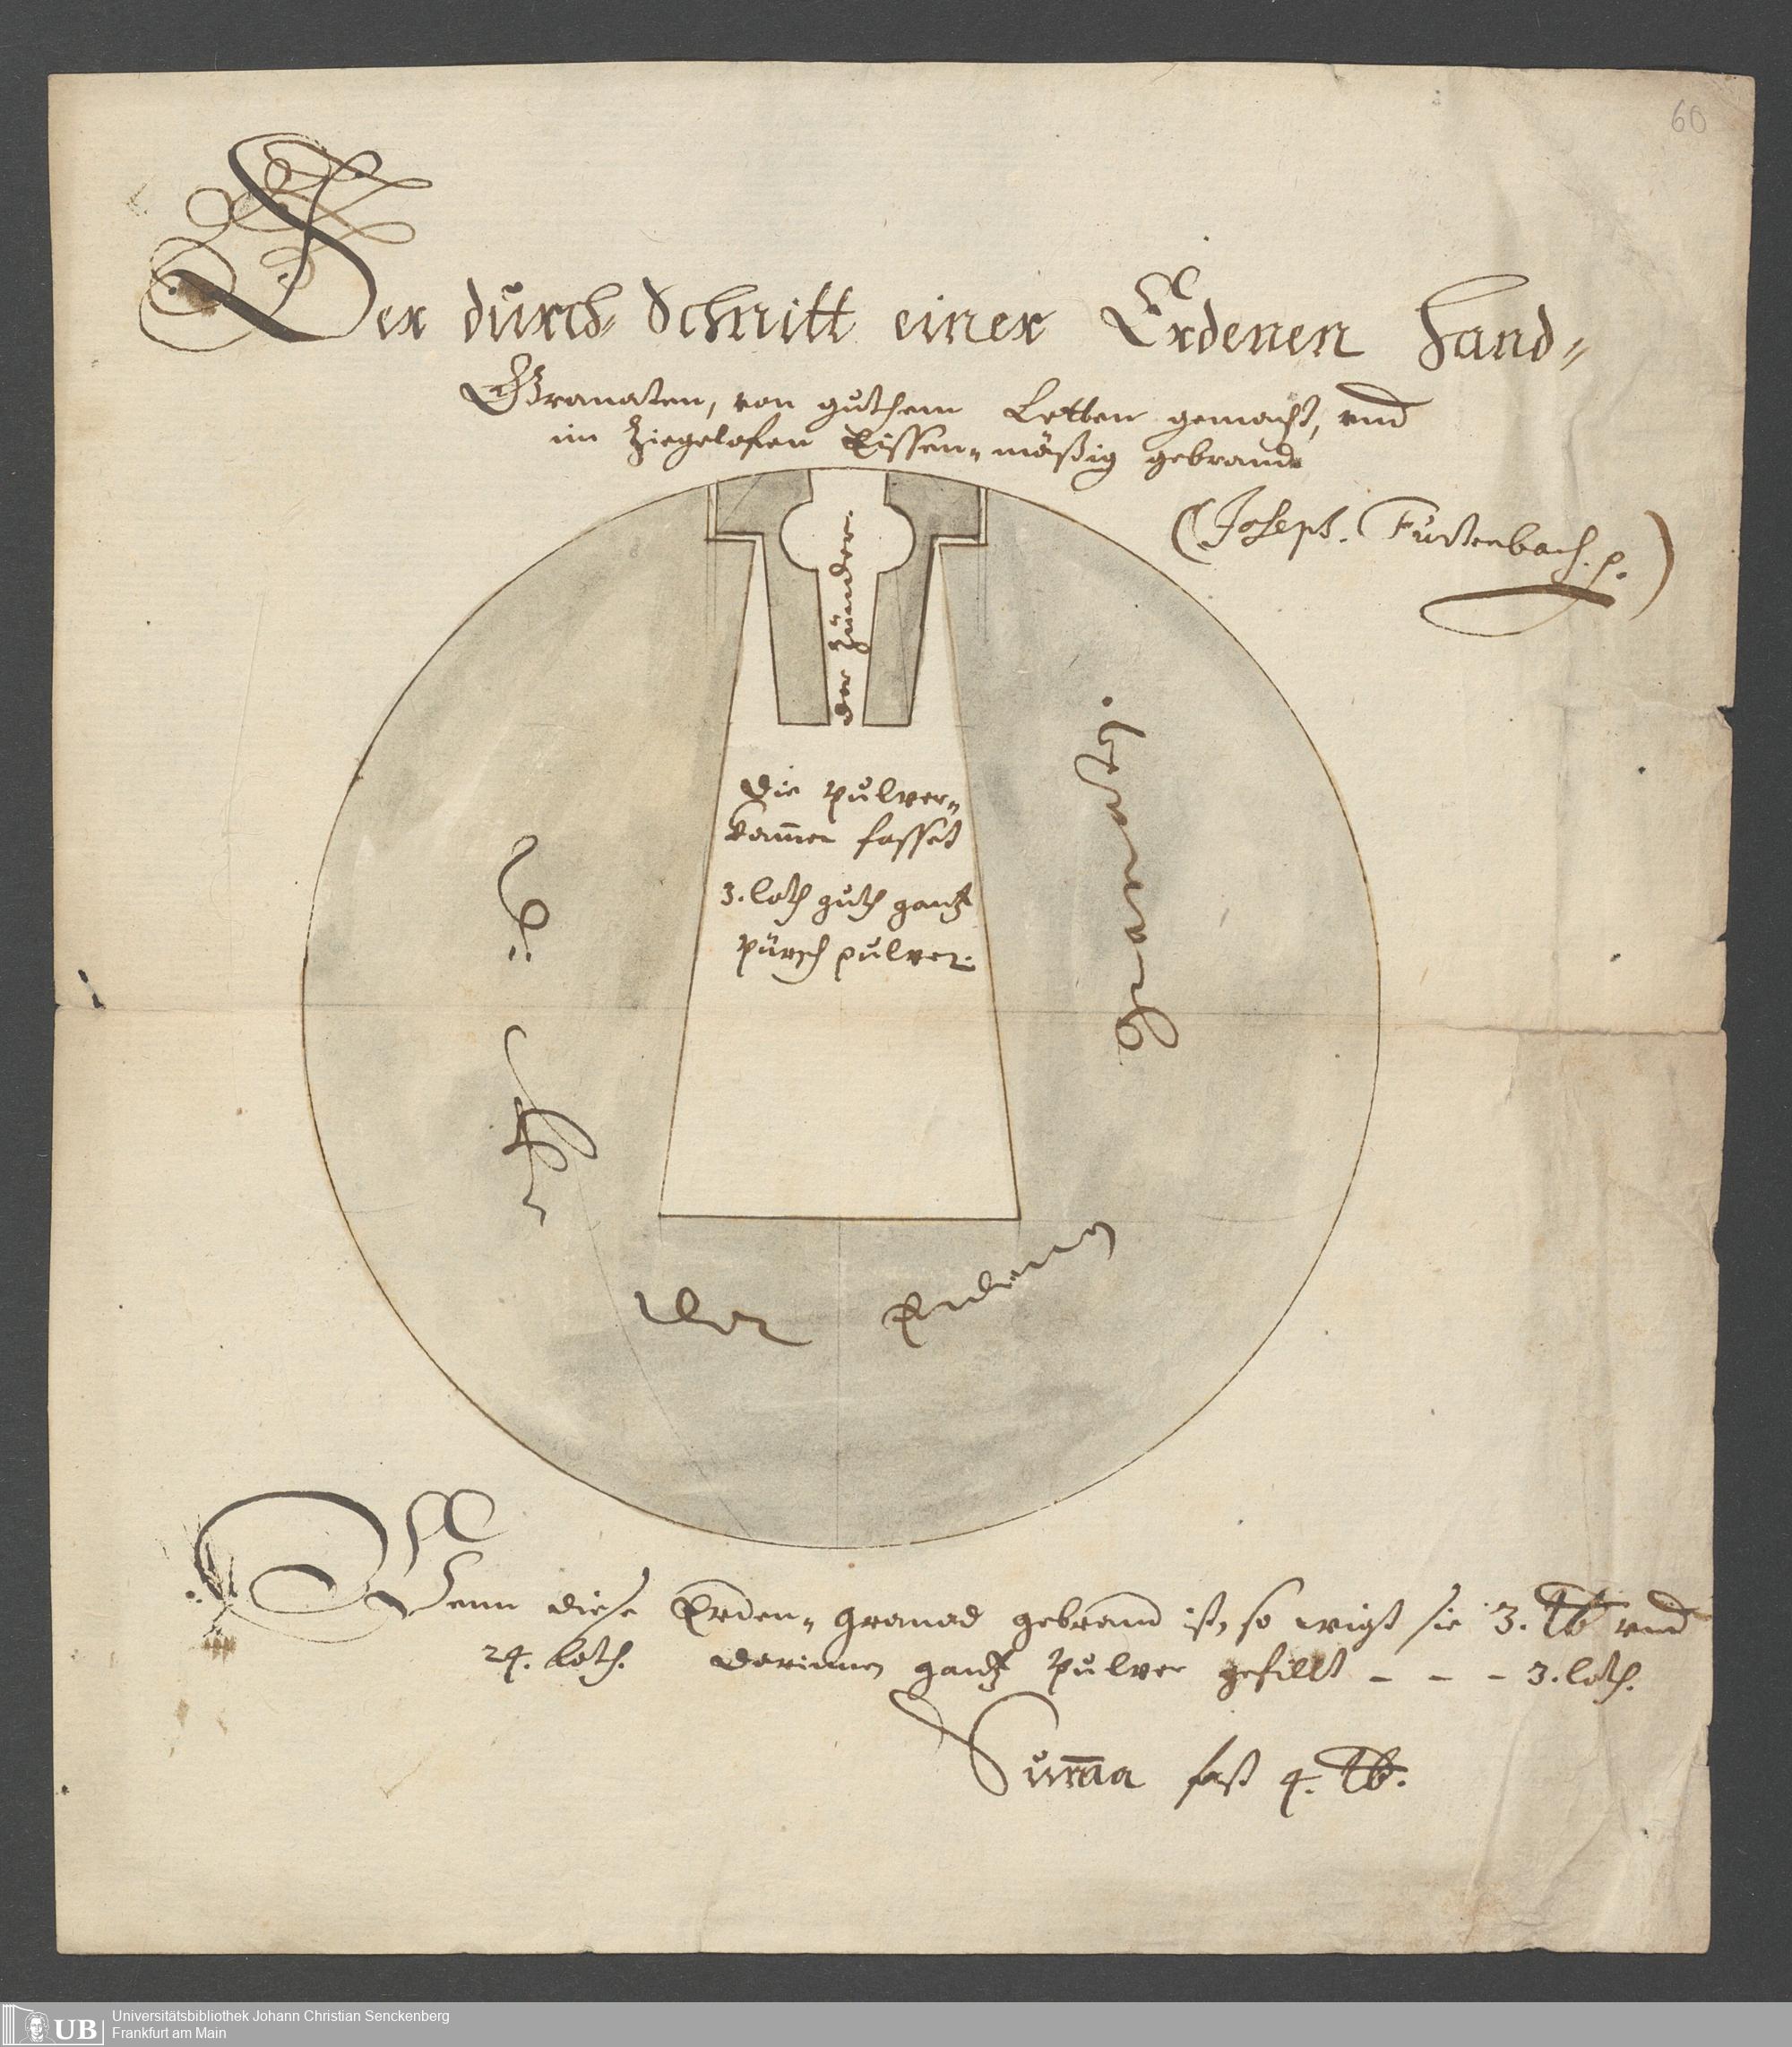 60
Der durch Schnitt einer Erdenen Hand„
Granaten, von guthem Letten gemacht, vnd
im Ziegelofen Eissen„mäßig gebrandt
(Joseph. Furttenbach. p.)
der Zünder.
die Pulver„
kam̄er fasset
3. loth guth gantz
Pürsch pulver.
der Erdenen
Granadt.
Wenn diese Erden„ granad gebrand ist, so wigt sie 3. ℔ vnd
24. Loth. darinnen gantz Pulver gefillt – – – 3. loth.
Sum̄a fast 4. ℔.
UB
Universitätsbibliothek Johann Christian Senckenberg
Frankfurt am Main